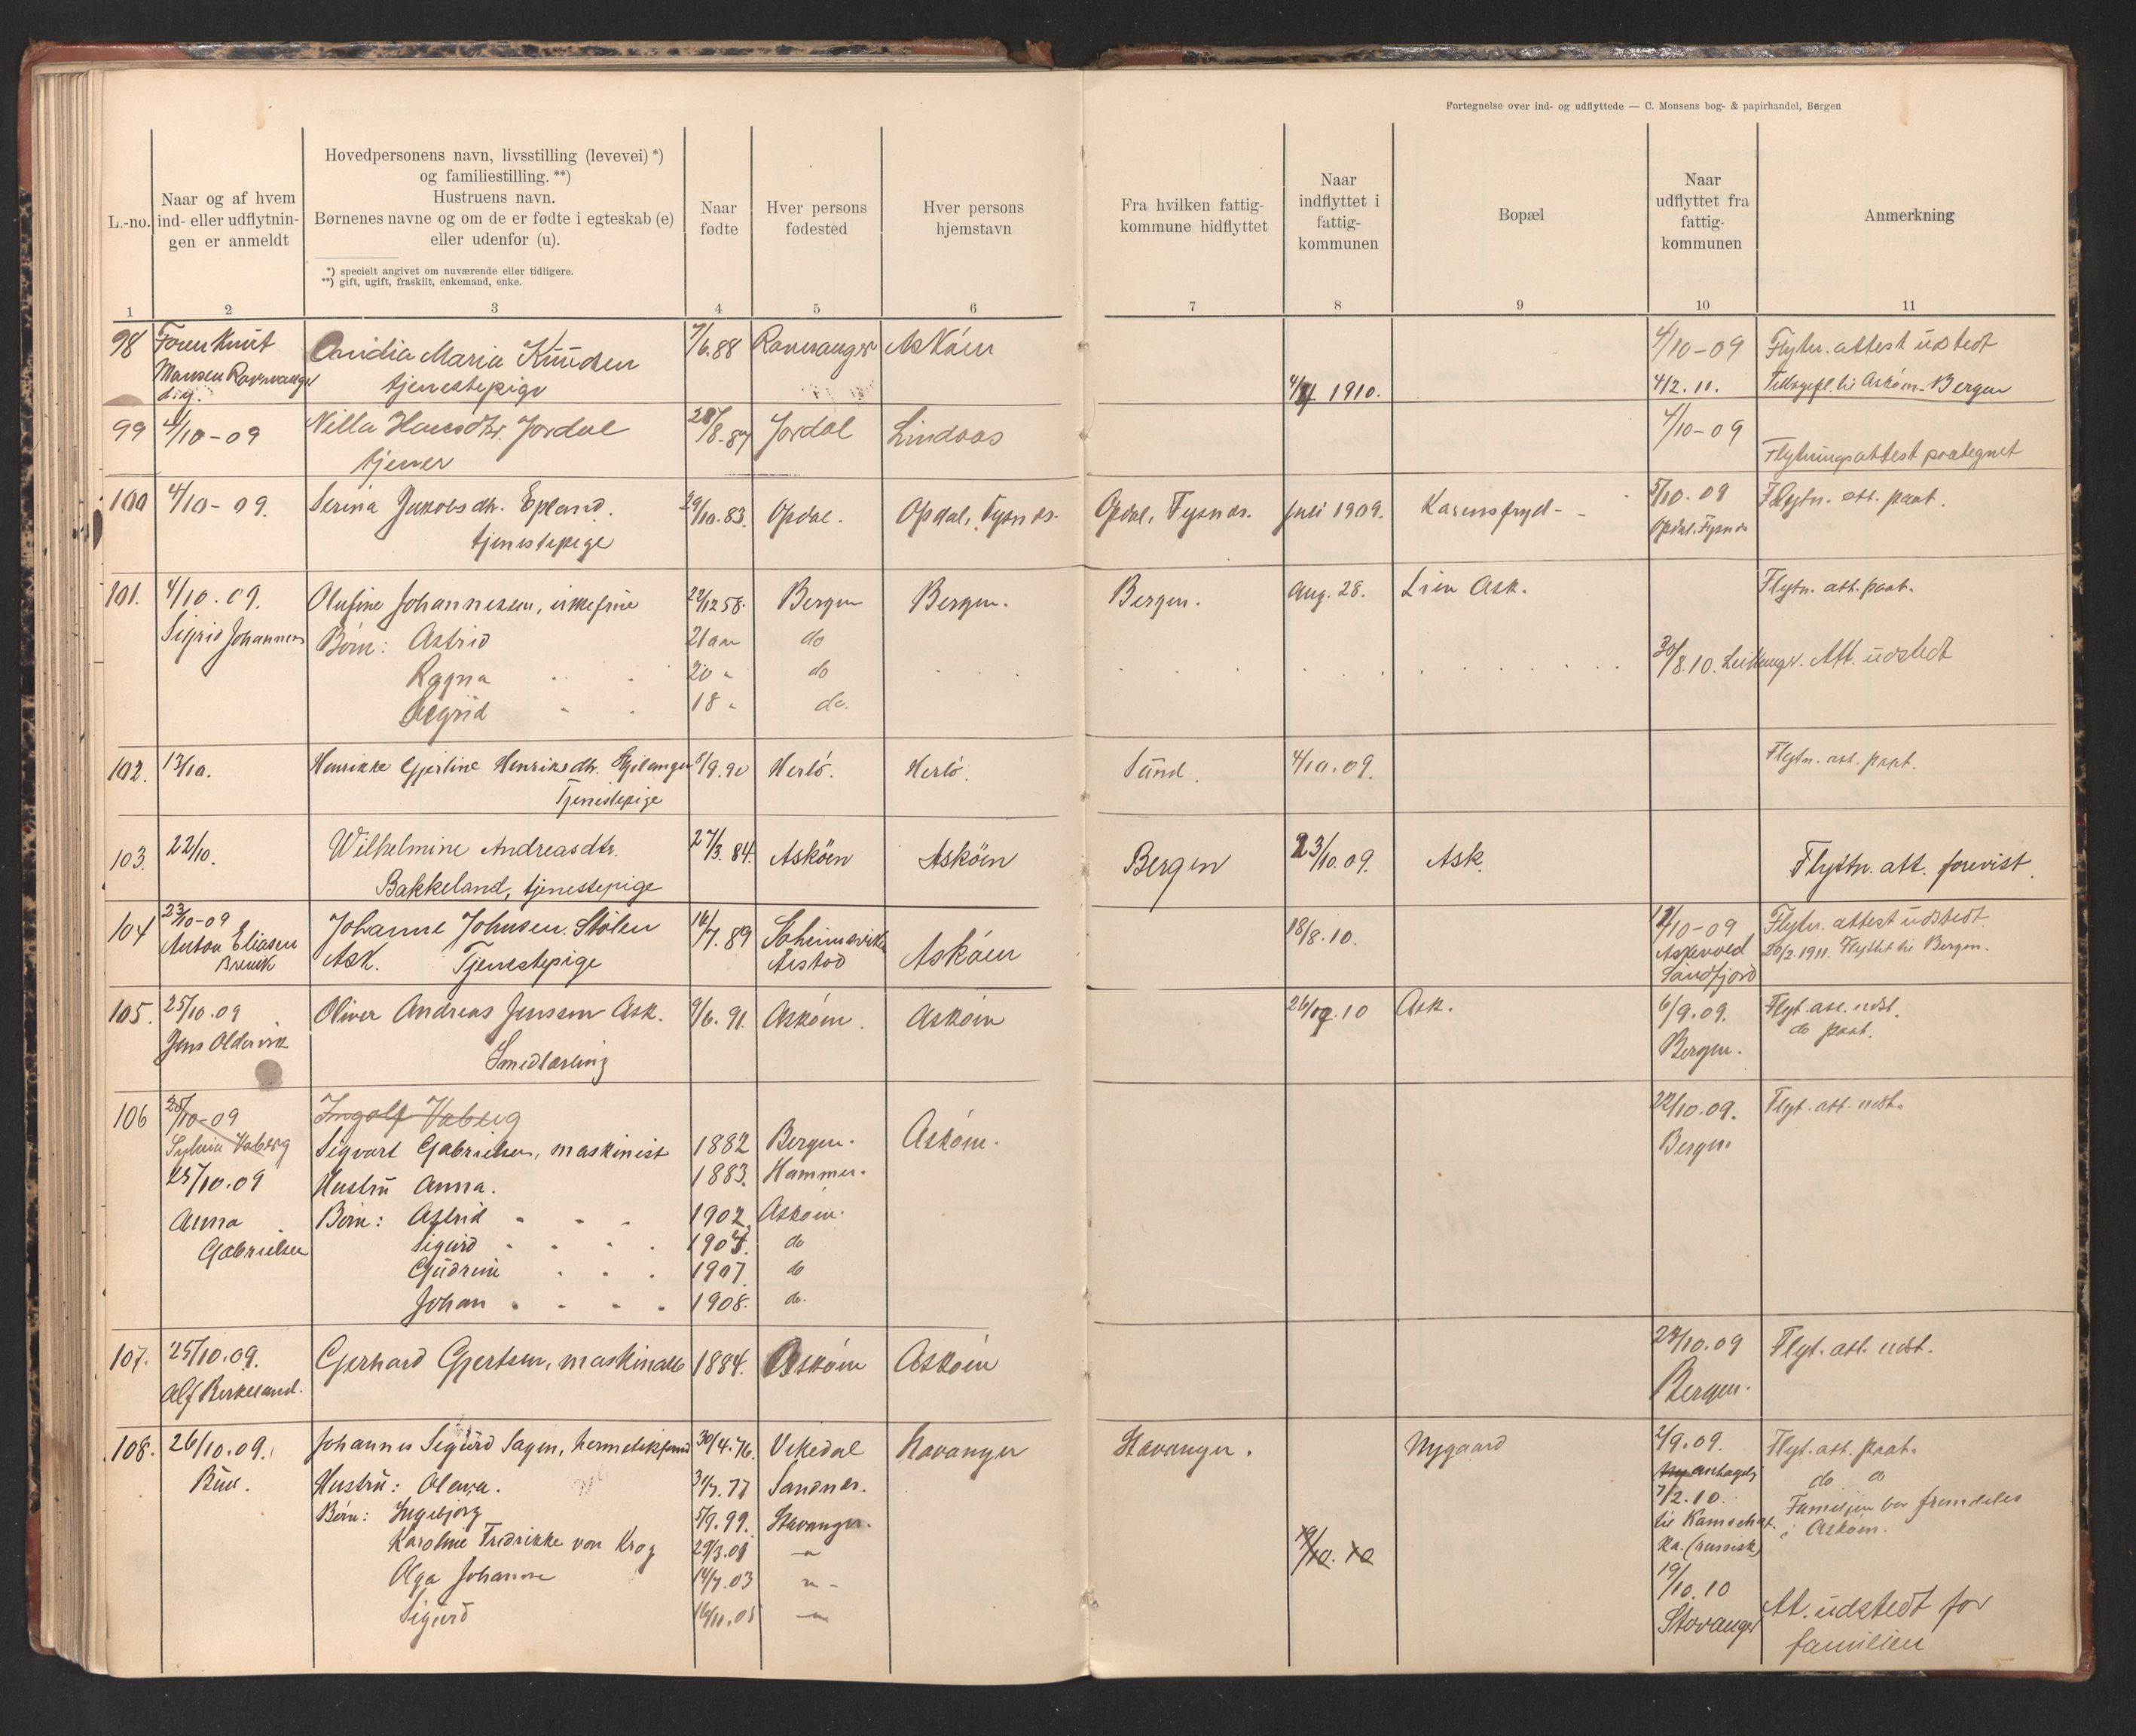 Fortegnelse over ind- og udflyttede — C. Monsens bog- & papirhandel, Bergen
L.-no.
Naar og af hvem
ind- eller udflytnin-
gen er anmeldt
Hovedpersonens navn, livsstilling (levevei) *)
og familiestilling. **)
Hustruens navn.
Børnenes navne og om de er fødte i egteskab (e)
eller udenfor (u).
*) specielt angivet om nuværende eller tidligere.
**) gift, ugift, fraskilt, enkemand, enke.
Naar
fødte
Hver persons
fødested
Hver persons
hjemstavn
Fra hvilken fattig-
kommune hidflyttet
Naar
indflyttet i
fattig-
kommunen
Bopæl
Naar
udflyttet fra
fattig-
kommunen
Anmerkning
1 2 3 4 5 6 7 8 9 10 11
98 Knut Maria Knudsen 7/6.88 Askøen 4/10-09 Flytn. attest udstedt
tjenestepige 1910. 4/2.11. Askøen - Bergen
99 4/10-09 Hansdtr. Jordal 28/8-87 Jordal Lindaas 4/10-09
tjener Flytningsattest paategnet
100 4/10-09. Serina Jakobsdtr. Epland. 29/10.83. Opdal. Opdal, Tysnes. Opdal, Tysnes. Juli 1909. 5/10.09 Flytn. att. paat.
tjenestepige Opdal. Tysnes
101. 4/10.09. Olufine Johannesen, 22/12 58. Bergen Bergen. Bergen. Aug. 28. Lien Ask. Flytn. att. paat.
Sigrid Johannes Børn: Astrid 21 aar do
Ragna 20 " do 30/8.10. Att. udstedt
Sigrid 18 " do.
102. 13/10. Henrikke Gjertine Henriksdtr. 8/9.90 Herlö. Herlö. Sund. 4/10.09. Flytn. att. paat.
Tjenistepige
103. 22/10. Wilhelmine Andreasdtr. 27/3.84. Asköen Asköen Bergen 23/10.09. Ask. Flyttn. att. forevist.
Bakkeland, tjenestepige
104 23/10-09 Johanne Johnsen Stølen 16/7.89 Askøen 18/8.10. /10-09 Flytn. attest udstedt.
Anton Eliasen Ask. Tjenestepige Aarstad Askevold 20/2.1911. Flyttet til Bergen.
Brevik Søndfjord
105. 25/10.09 Oliver Andreas Jenssen Ask. 9/6.91. Askøen. Askøen 10 Ask. 6/9.09. Flyt. att. udst.
Jens Oldervik Smedlærling Bergen. do paat.
106 25/10-09 Ingolf Vaberg 22/10.09. Flyt. att. udst.
Vaberg Sigvart Gabrielsen, maskinist 1882 Bergen. Askøen. Bergen
25/10.09 Hustru Anna. 1883. Hammer.
Anna Børn: Astrid 1902 Askøen.
Gabrielsen Sigurd do
Gudrun 1907 do
Johan 1908. do.
107. 25/10.09. Gerhard Gjertsen, 1884. Askøen Askøen 23/10.09 Flyt. att. udst.
Alf Birkeland. Bergen.
108. 26/10.09. Johannes Sigurd Sagen, 30/4.76. Vikedal Stavanger Stavanger. Nygaard 2/9.09. Flyt. att. paat.
Bud. Hustru: Olava. 77 Sandnes. do do
Børn: Ingebjørg 5/9.99. Stavanger. 7/2.10. Familjen bor fremdeles
Karoline Fredrikke von Krog til Kamschat- i Askøen.
Olga Johanne 14/7.03 19/10.10 ka. (russisk)
Sigurd 19/10.10
Stavanger Att. udstedt for
familien